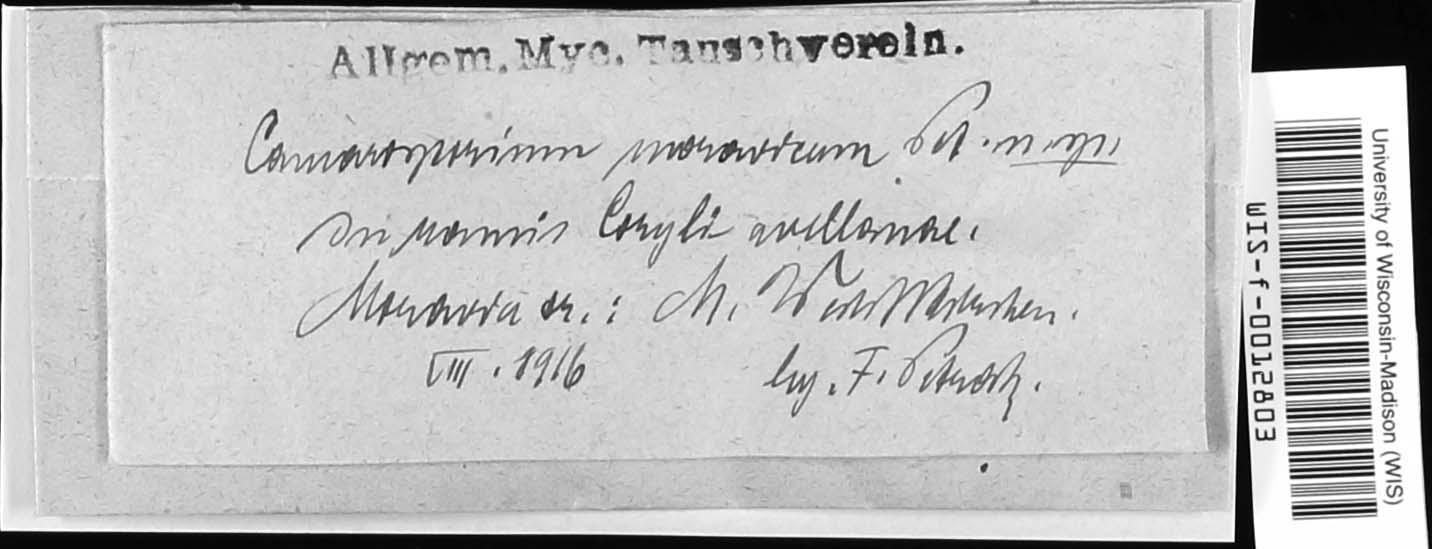 Allgem. Myc. Tauschverein.
Camarosporium moravicum Pet. n. sp.
In ramis Coryli avellanae.
Moravia or.: M. Weißkirchen.
VIII. 1916 leg. F. Petrak.
University of Wisconsin-Madison (WIS)
WIS-f-0012803